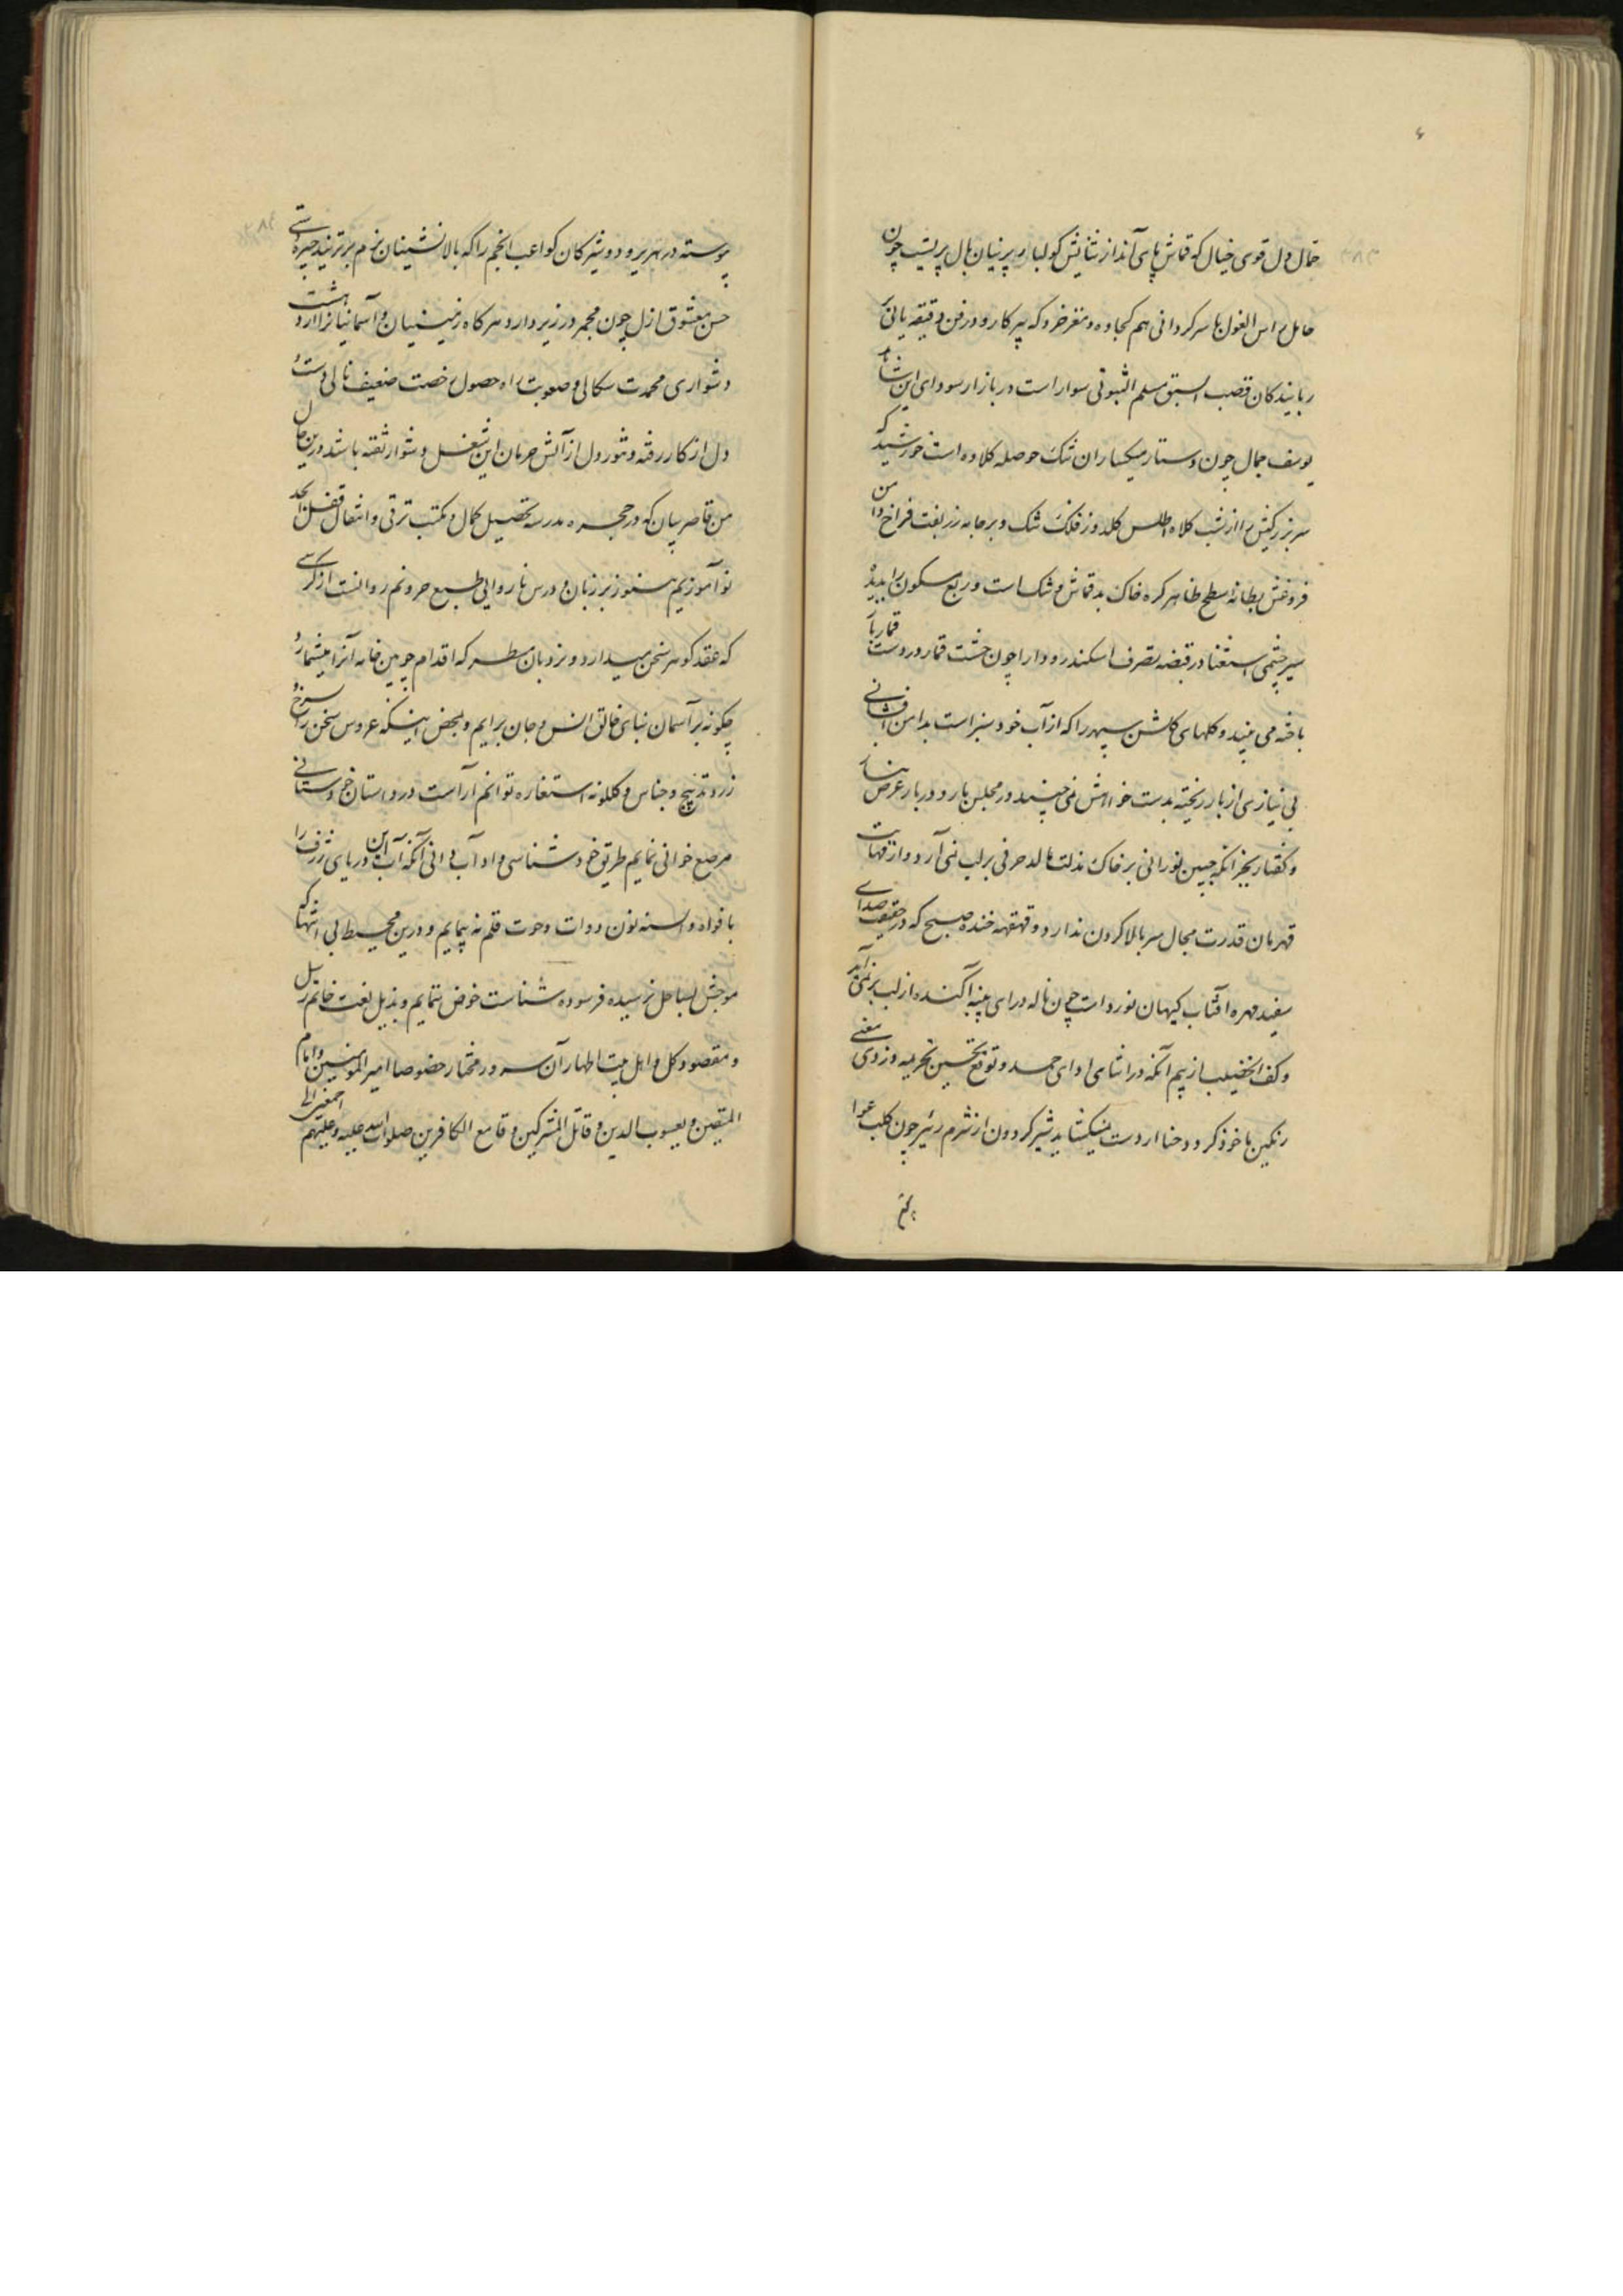 حمال دل قوی خیال که قماش پای آنداز ثنایش کولبار پرنیان بال پریست چون
حامل راس الغول با سرکردانی هم کجاوه و مغز خرد که پیر کار و در فن دقیقه یابی
ربایندکان قصب السبق مسلم الثبوتی سوار است در بازار سودای این
یوسف جمال چون دستار سبکساران تنک حوصله کلاوه است خورشید که
سر زرکش را از شب کلاه اطلس کلدوز فلک تنک و بر جامه زربفت فراخ دامن
فروغش بطانه سطح ظاهر کره خاک بد قماش و شک است و ربع مسکون را بدیده
سیر چشمی استغنا در قبضه تصرف اسکندر و دارا چون خشت قمار در دست قمار
باخته می بیند و کلهای کلشن سپهر را که از آب خود سبز است بدامن افشانی
بی نیازی از بار ریخته بدست خواهش نمی چیند در مجلس بار و دربار عرض نیاز
و کفتار بجز آنکه جبین نورانی بر خاک مذلت مالد حرفی بر لب نمی آرد و از
قهرمان قدرت مجال سر بالا کردن ندارد و قهقهه خنده صبح که در حقیقت صدای
سفید مهره آفتاب کیهان نورد است چون ناله درای پنبه آکنده از لب بر نمی آید
و کف الخضیب از بیم آنکه در اثنای ادای حمد و توقع تحسین بجریمه دزدی معنی
رنکین ماخوذ کردد حنا از دست میکشاید شیر کردون از شرم زئیر چون کلب عوا

پیوسته در هریر و دوشیزکان کواعب انجم را که بالانشینان بزم برتریند چیره دستی
حسن معشوق ازل چون مجمر در زیر دارد هر کاه زمینیان و آسمانیانرا از دهشت
دشواری محمدت سکالی و صعوبت راه حصول رخصت ضعیف نالی دست و
دل از کار رفته و تنور دل از آتش حرمان این شغل دشوار تفته باشد درین حال
من قاصر بیان که در حجره مدرسه تحصیل کمال و مکتب ترقی و انتقال طفل ابجد
نو آموزیم هنوز بر زبان درس ناروایی طبع حرونم روانست از کرسی
که عقد کوهر سخن میدارد و نردبان سطر که اقدام چوبین خامه آنرا میشمارد
چکونه بر آسمان ثنای خالق انس و جان برایم و بمحض اینکه عروس سخن را بسرخ و
زرد ترنج و جناس و کلکونه استعاره توانم آراست در داستان خود ستانی
مرصع خوانی نمایم طریق خود شناسی و ادآب دانی آنکه آب این دریای ژرف را
بافواه و السنه نون دوات و حوت قلم نه پیمایم و درین محیط بی انتها که
موجش بساحل نرسیده فرسوده شناست خوض ننمایم و بذیل نعت خاتم رسل
و مقصود کل و اهل بیت اطهار آن سرور مختار خصوصا امیر المومنین و امام
المتقین و یعسوب الدین و قاتل المشرکین و قامع الکافرین صلوات الله علیه و علیهم اجمعین الی